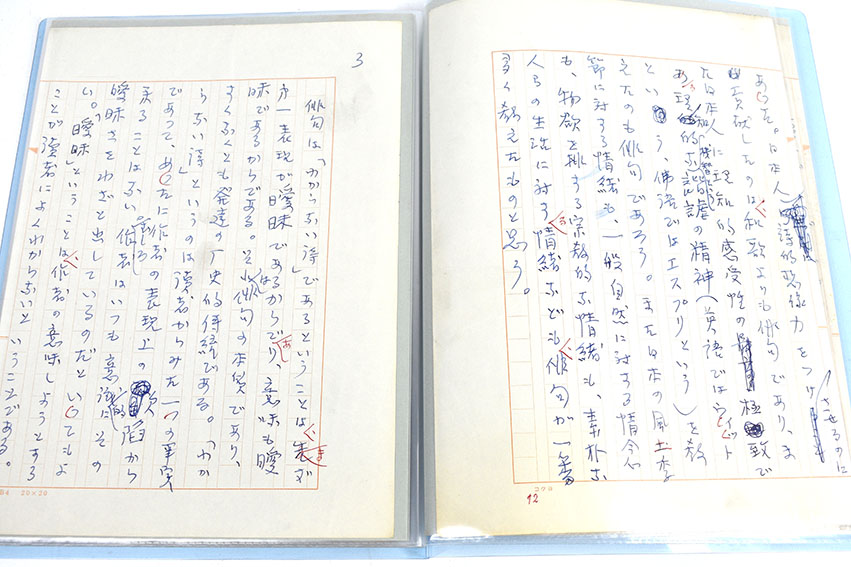 させるのに
日本人の詩的想像力をつけ
貢献したのは和歌よりも俳句であり、ま
た日本人に理知的感受性の極致で
ある理知的な諧謔の精神（英語ではウィット
という、佛語ではエスプリという）を教
えたのも俳句であろう。また日本の風土季
節に対する情緒も、一般自然に対する情念
も、物欲を排する宗教的な情緒も、素朴な
人らの生活に対する情緒なども俳句が一番
多く教えたものと思う。
12
コクヨ
3
俳句は「わからない詩」であるということは、まず
第一表現が曖昧であるからであり、意味も曖
昧であるからである。それは俳句の本質であり、
すくなくとも発達の歴史的伝統である。「わか
らない詩」というのは読者からみた一つの事実
であって、作者の表現上の欠陥から
来ることはない。むしろ作者はいつも意識的にその
曖昧さをわざと出しているのだといってもよ
い。「曖昧」ということは、作者の意味しようとする
ことが読者によくわからないということである。
20×20